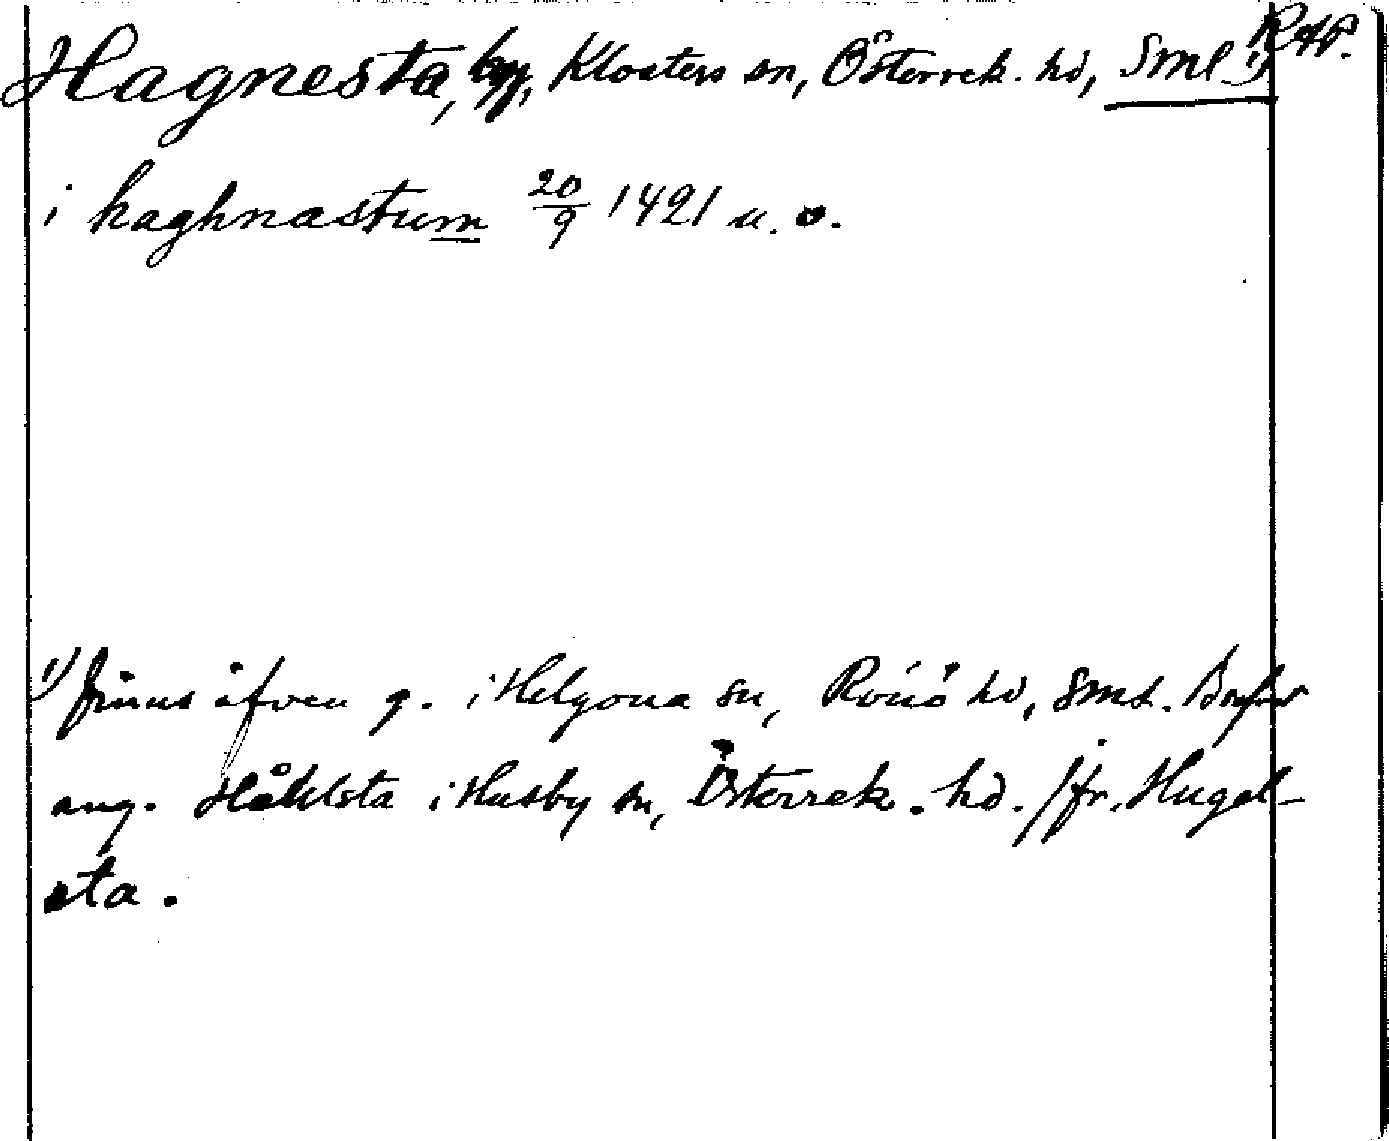 Hagnesta, by, Klosters sn, Österrek. hd, Sml. 1) RAP.
i haghnastum 20/9 1421 u. o.
1) finns äfven g. i Helgona sn, Rönö hd, Sml.
ang. Håklsta i Husby sn, Österrek. hd. Jfr. Hugel-
sta.